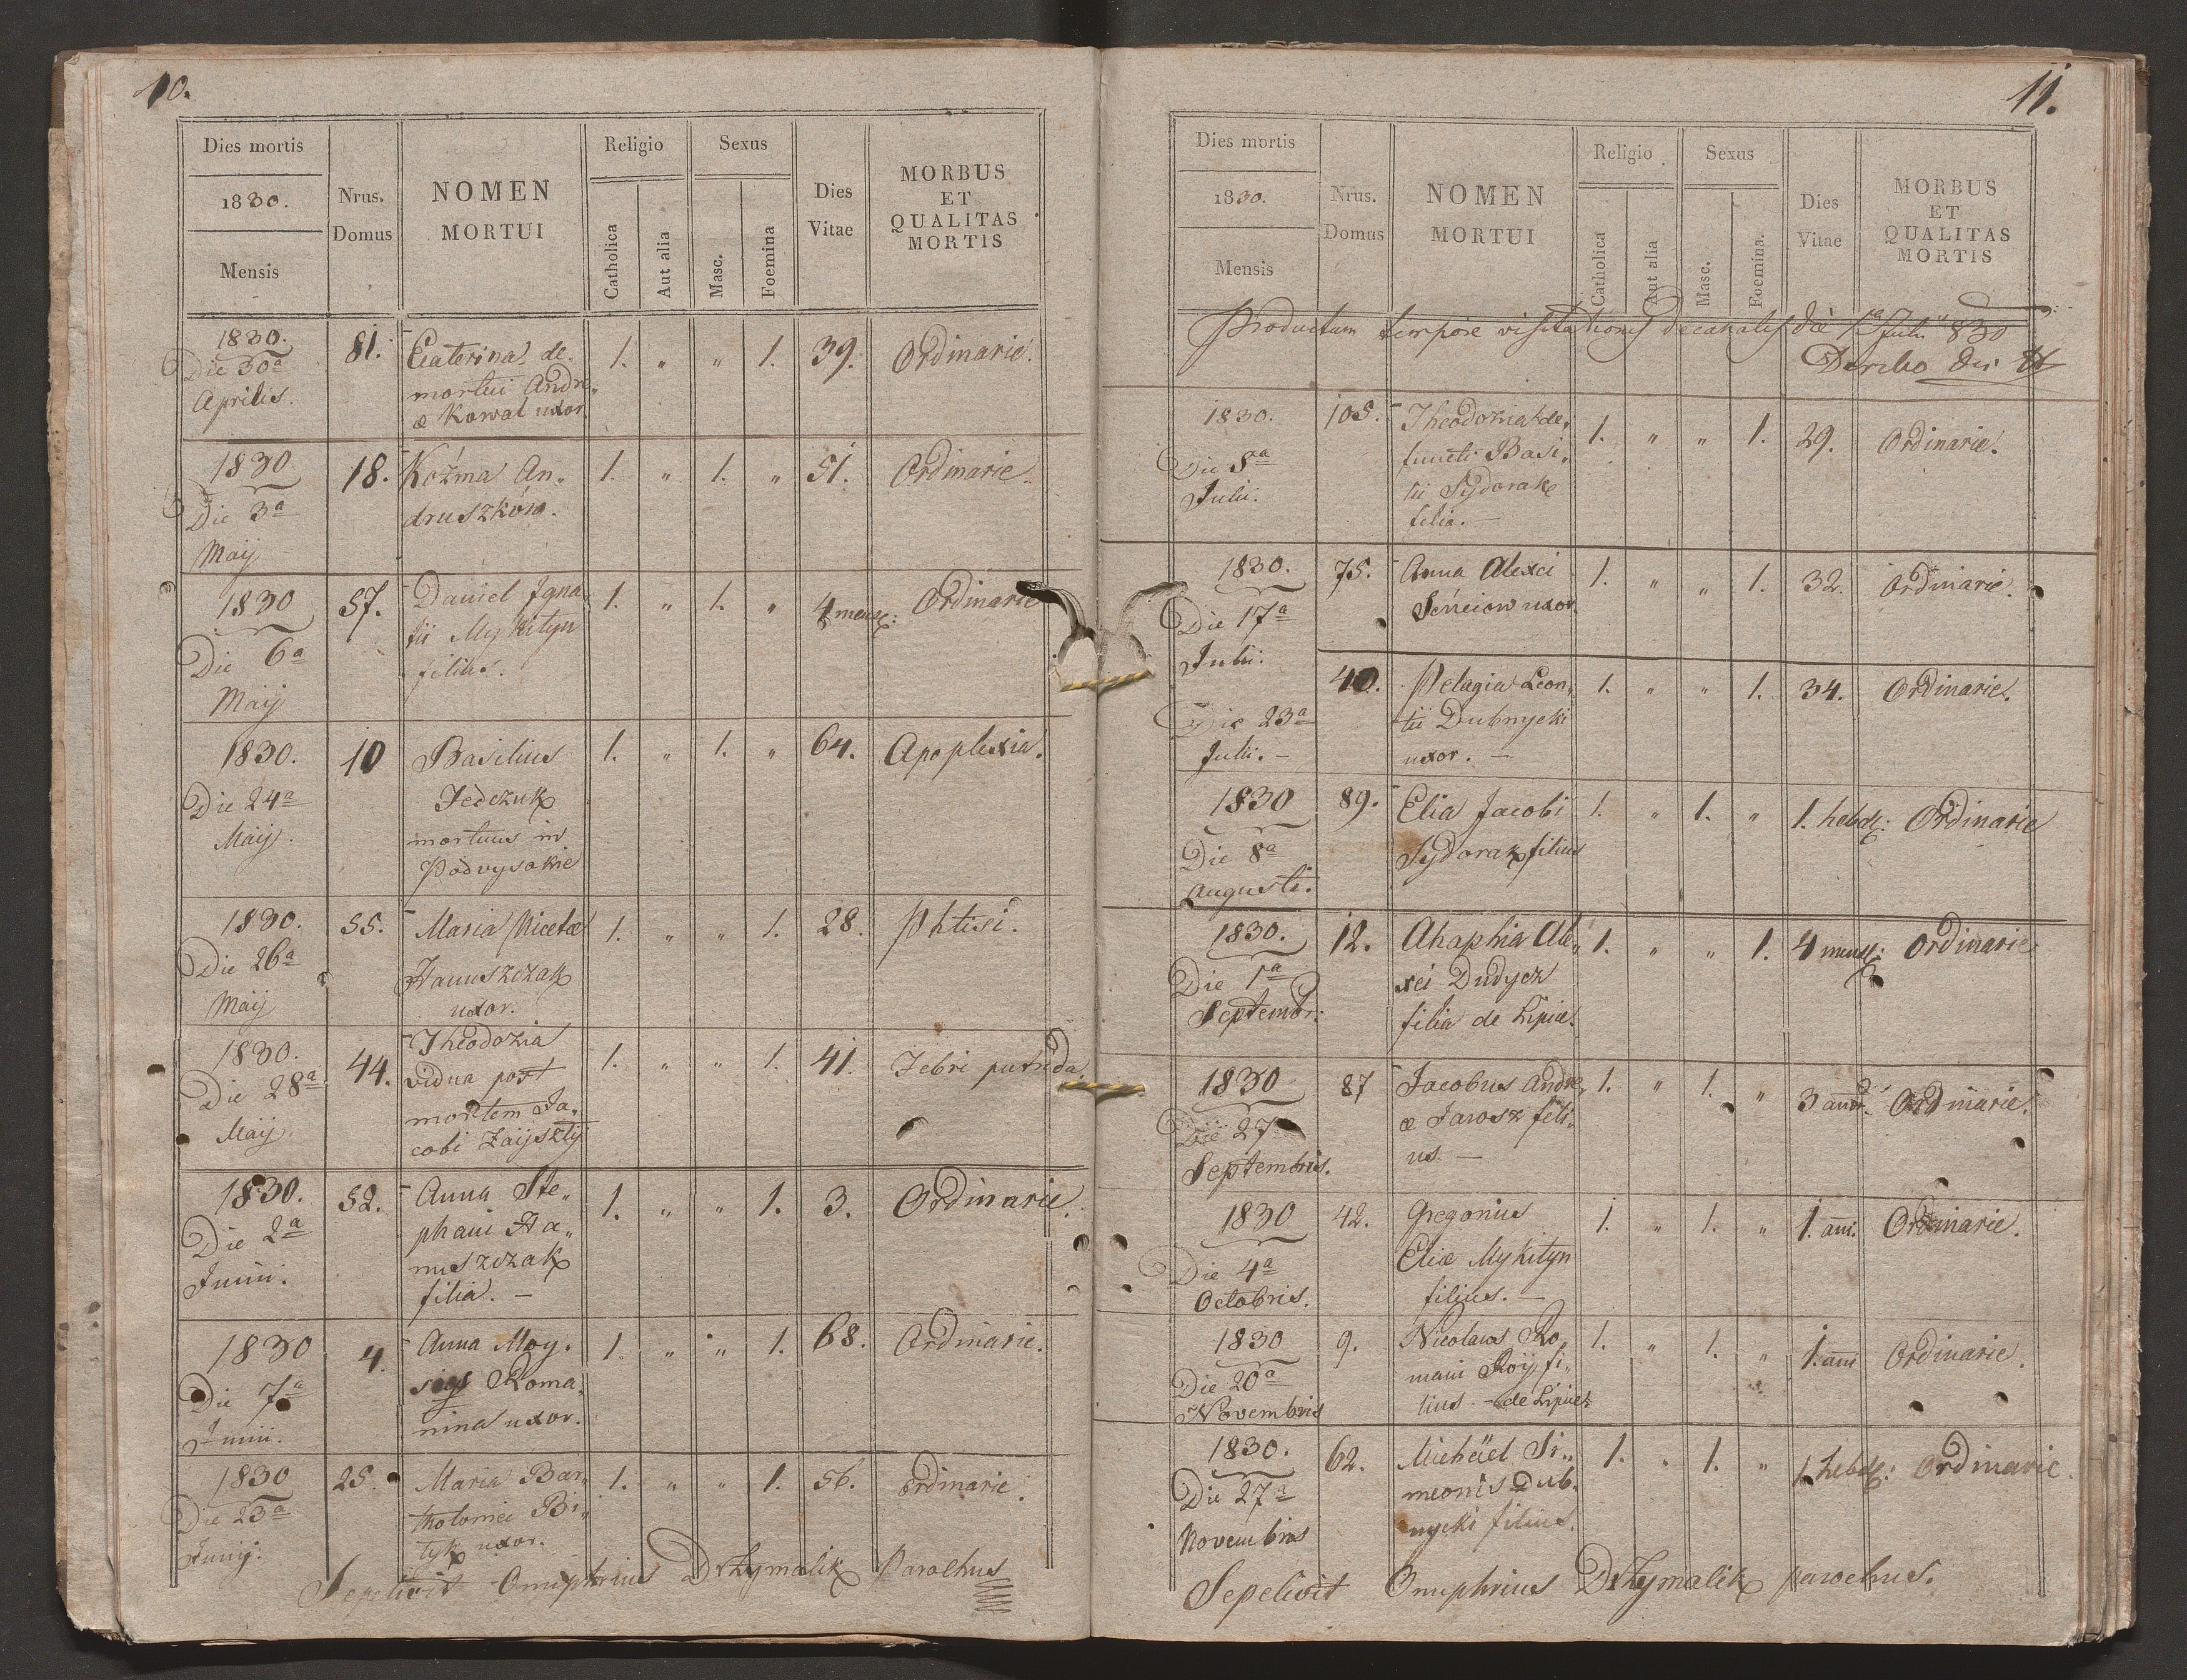 10.
Dies mortis
1830.
Mensis
Nrus.
Domus
NOMEN
MORTUI
Religio
Catholica
Aut alia
Sexus
Masc.
Foemina
Dies
Vitae
MORBUS
ET
QUALITAS
MORTIS
1830. 81. Ecaterina de- 1. " " 1. 39. Ordinarie.
Die 30a mortui Andre„
Aprilis. æ Kowal uxor.
1830 18. Koźma An„ 1. " 1. " 51. Ordinarie.
Die 3a druszków.
Maij
1830 57. Daniel Igna„ 1. " 1. " 4 mens: Ordinarie
Die 6a tii Mykityn
Maij filius.
1830. 10 Basilius 1. " 1. " 64. Apoplexia.
Die 24a Fedczuk
Maij. mortuus in
Podvysokie
1830. 55. Maria Nicetæ 1. " " 1. 28. Phtisi.
Die 26a Hanuszczak
Maij uxor.
1830. 44. Theodozia 1. " " 1. 41. Febri putrida.
Die 28a vidua post
Maij. mortem Ja„
cobi
1830. 52. Anna Ste„ 1. " " 1. 3. Ordinarie.
Die 2a phani Ha„
Junii. nuszczak
filia. —
1830 4. Anna Moy„ 1. " " 1. 68. Ordinarie.
Die 7a Roma„
Junii. nina uxor.
1830 25. Maria Bar„ 1. " " 1. 56. Ordinarie.
Die 23a tholomei Bi„
Junij. tyk uxor.
Sepelivit Onuphrius Drzymalik Parochus
11.
Dies mortis
1830.
Mensis
Nrus.
Domus
NOMEN
MORTUI
Religio
Catholica
Aut alia
Sexus
Masc.
Foemina.
Dies
Vitae
MORBUS
ET
QUALITAS
MORTIS
Productum tempore visitationis decanalis die 1a Julii 830
1830. 105. Theodozia de„ 1. " " 1. 29. Ordinarie.
Die 8a functi Basi„
Julii. lii Sydorak
filia. —
1830. 75. Anna Alexei 1. " " 1. 32. Ordinarie.
Die 17a uxor.
Julii.
40. Pelagia Leon„ 1. " " 1. 34. Ordinarie.
Die 23a tii Dubnycki
Julii. — uxor. —
1830 89. Elia Jacobi 1. " 1. " 1. hebd: Ordinarie
Die 8a Sydorak filius
Augusti.
1830. 12. Ahaphia Ale„ 1. " " 1. 4 mens: Ordinarie
Die 1a xei Dudycz
Septembr: filia de Lipic.
1830 87 Jacobus Andre„ 1. " 1. " 3 Ordinarie.
Die 27 æ Jarosz fili„
Septembris. us —
1830 42. Gregorius 1. " 1. " 1. ani. Ordinarie.
Die 4a Eliæ Mykityn
Octobris. filius. —
1830 9. Nicolaus Ro„ 1. " 1. " 1. ani Ordinarie.
Die 20a mani Roij fi„
Novembris lius - de Lipicz
1830. 62. Michäel Si„ 1. " 1. " 1. hebd: Ordinarie.
Die 27a meonis Dub„
Novembris nycki filius.
Sepelivit Onuphrius Drzymalik parochus.